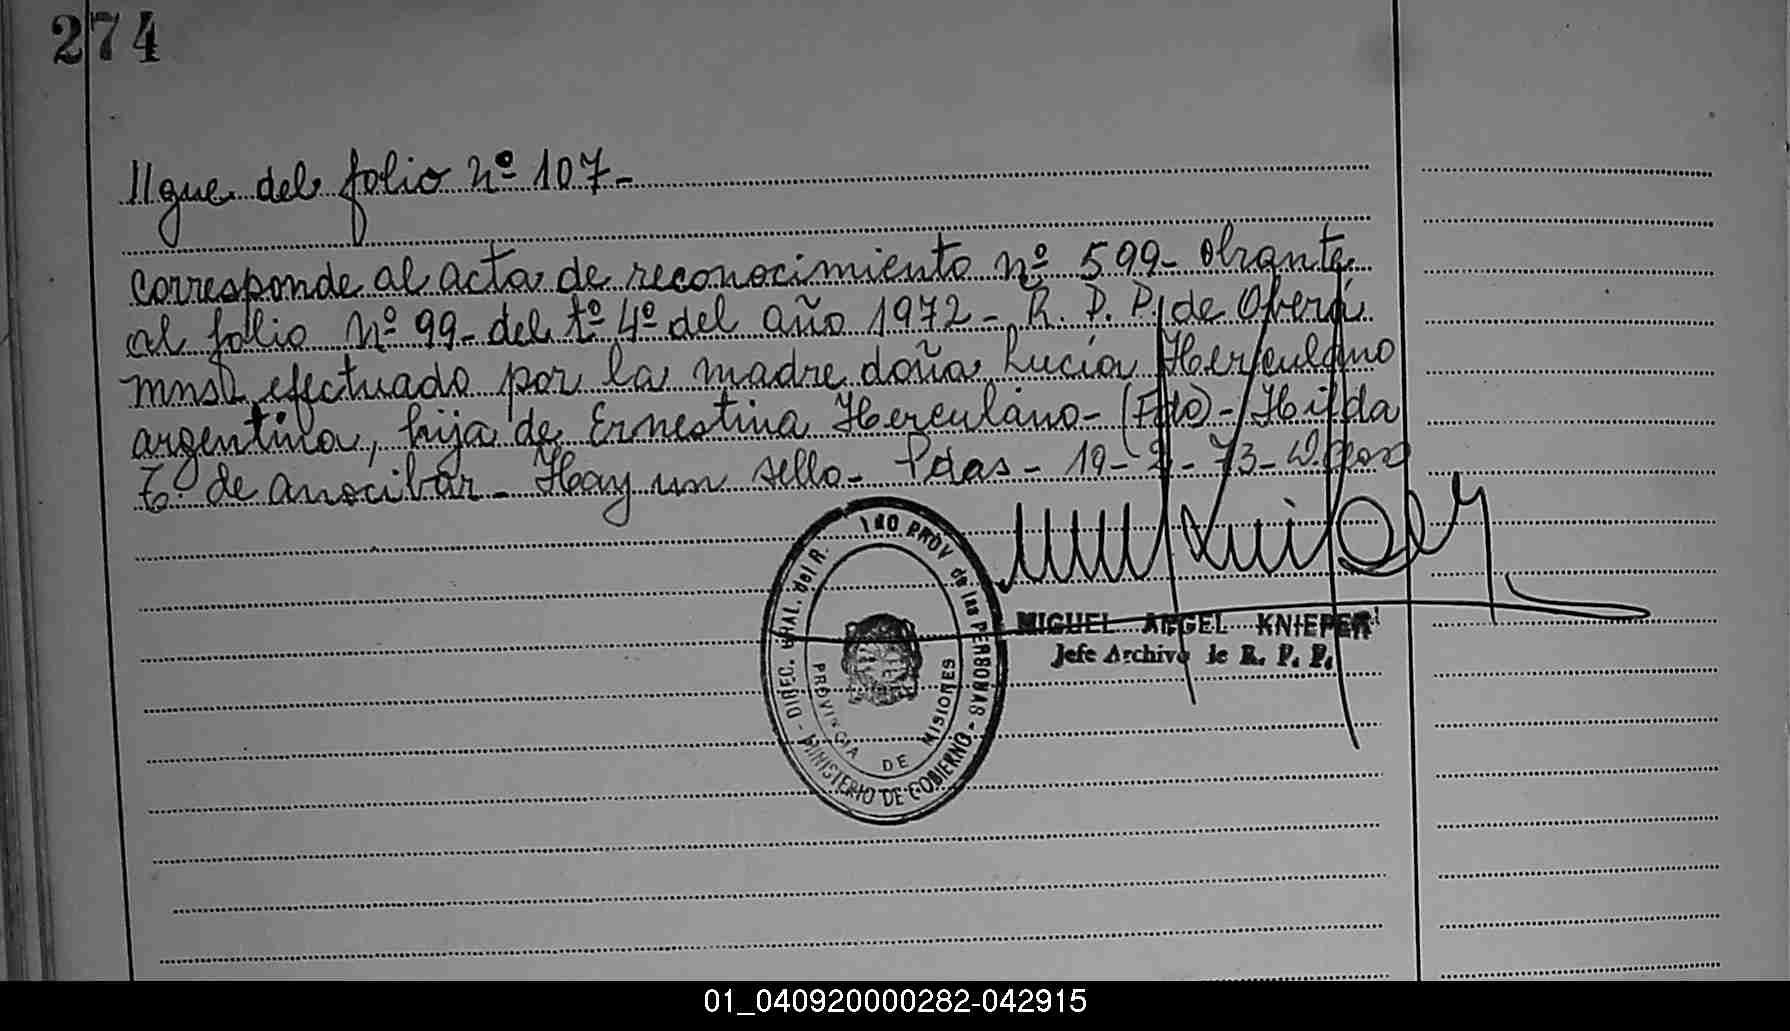 274
//gue del folio nº 107-
corresponde al acta de reconocimiento nº 599- obrante
al folio nº 99- del tº 4º del año 1972- R. P. P. de Oberá
mns. efectuado por la madre doña Lucía Herculano
argentina, hija de Ernestina Herculano- (Fdo)- Hilda
de anocibar- Hay un sello- Pdas- 19- 2- 73-
DIREC. GRAL. del R. PROV de las PERSONAS - MINISTERIO DE GOBIERNO -
PROVINCIA DE MISIONES
MIGUEL ANGEL KNIEPER
Jefe Archivo de R. P. P.
01_040920000282-042915